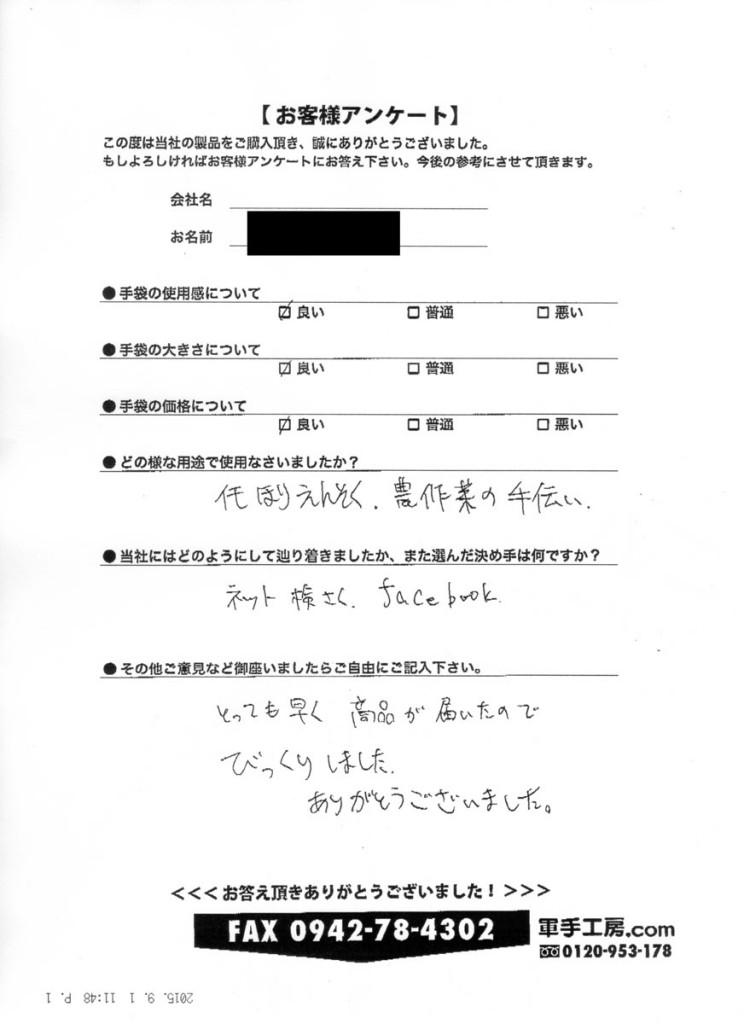 【お客様アンケート】
この度は当社の製品をご購入頂き、誠にありがとうございました。
もしよろしければお客様アンケートにお答え下さい。今後の参考にさせて頂きます。
会社名
お名前
●手袋の使用感について
☑良い □普通 □悪い
●手袋の大きさについて
☑良い □普通 □悪い
●手袋の価格について
☑良い □普通 □悪い
●どの様な用途で使用なさいましたか？
ほりえんそく、農作業の手伝い、
●当社にはどのようにして辿り着きましたか、また選んだ決め手は何ですか？
ネット検さく、facebook.
●その他ご意見など御座いましたらご自由にご記入下さい。
とっても早く 商品が届いたので
びっくりしました、
ありがとうございました。
<<<お答え頂きありがとうございました！>>>
FAX 0942-78-4302
軍手工房.com
0120-953-178
2015. 9. 1 11:48 P. 1